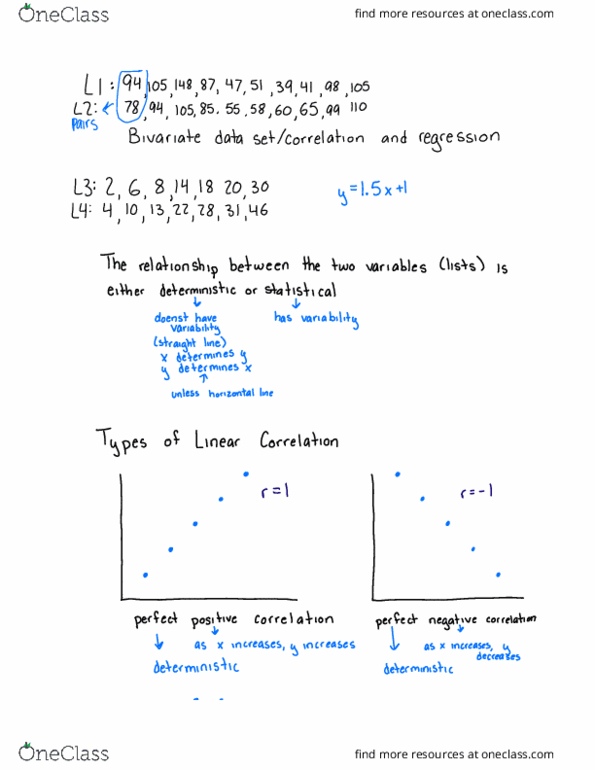 OneClass
find more resources at oneclass.com
L1: 94, 105, 148, 87, 47, 51, 39, 41, 98, 105
L2: 78, 94, 105, 85. 55, 58, 60, 65, 99 110
Pairs
Bivariate data set/correlation and regression
L3: 2, 6, 8, 14, 18 20, 30
y = 1.5x+1
L4: 4, 10, 13, 22, 28, 31, 46
The relationship between the two variables (lists) is
either deterministic or statistical
doenst have
variability
has variability
(straight line)
x determines y
y determines x
unless horizontal line
Types of Linear Correlation
r = 1
r = -1
perfect positive correlation
perfect negative correlation
as x increases, y increases
as x increases, y
decreases
deterministic
deterministic
OneClass
find more resources at oneclass.com